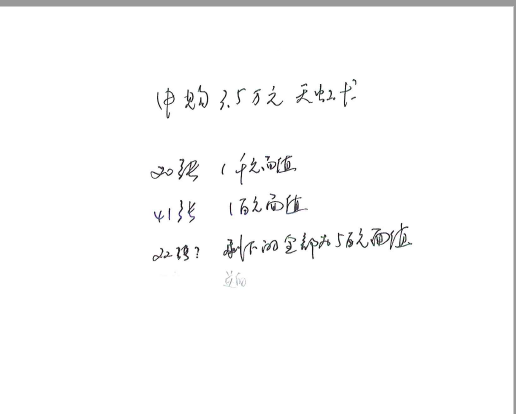 申购3.5万元 天虹卡
20张 1千元面值
41张 1百元面值
22张? 剩下的全部为5百元面值